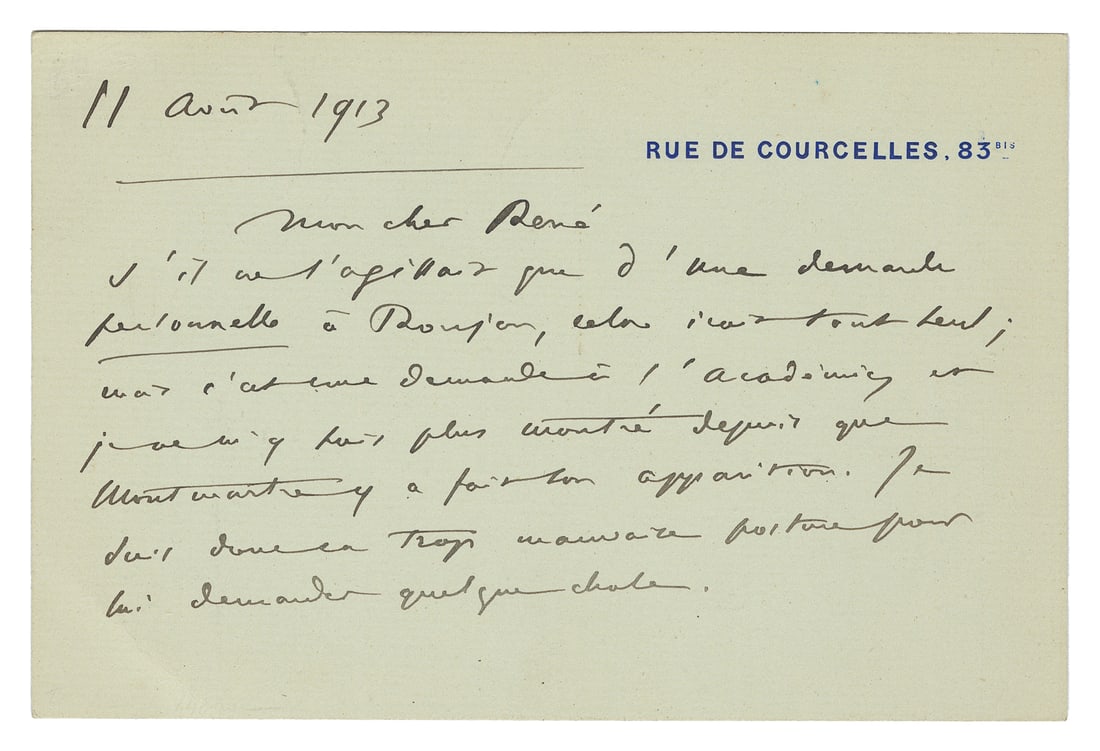 11 Août 1913
RUE DE COURCELLES, 83 BIS
Mon cher René
s'il ne s'agissait que d'une demande
personnelle à Roujon, cela irait tout seul ;
mais c'est une demande à l'Académie, et
je ne m'y suis plus montré depuis que
Montmartre y a fait son apparition. Je
suis donc en trop mauvaise posture pour
lui demander quelque chose.